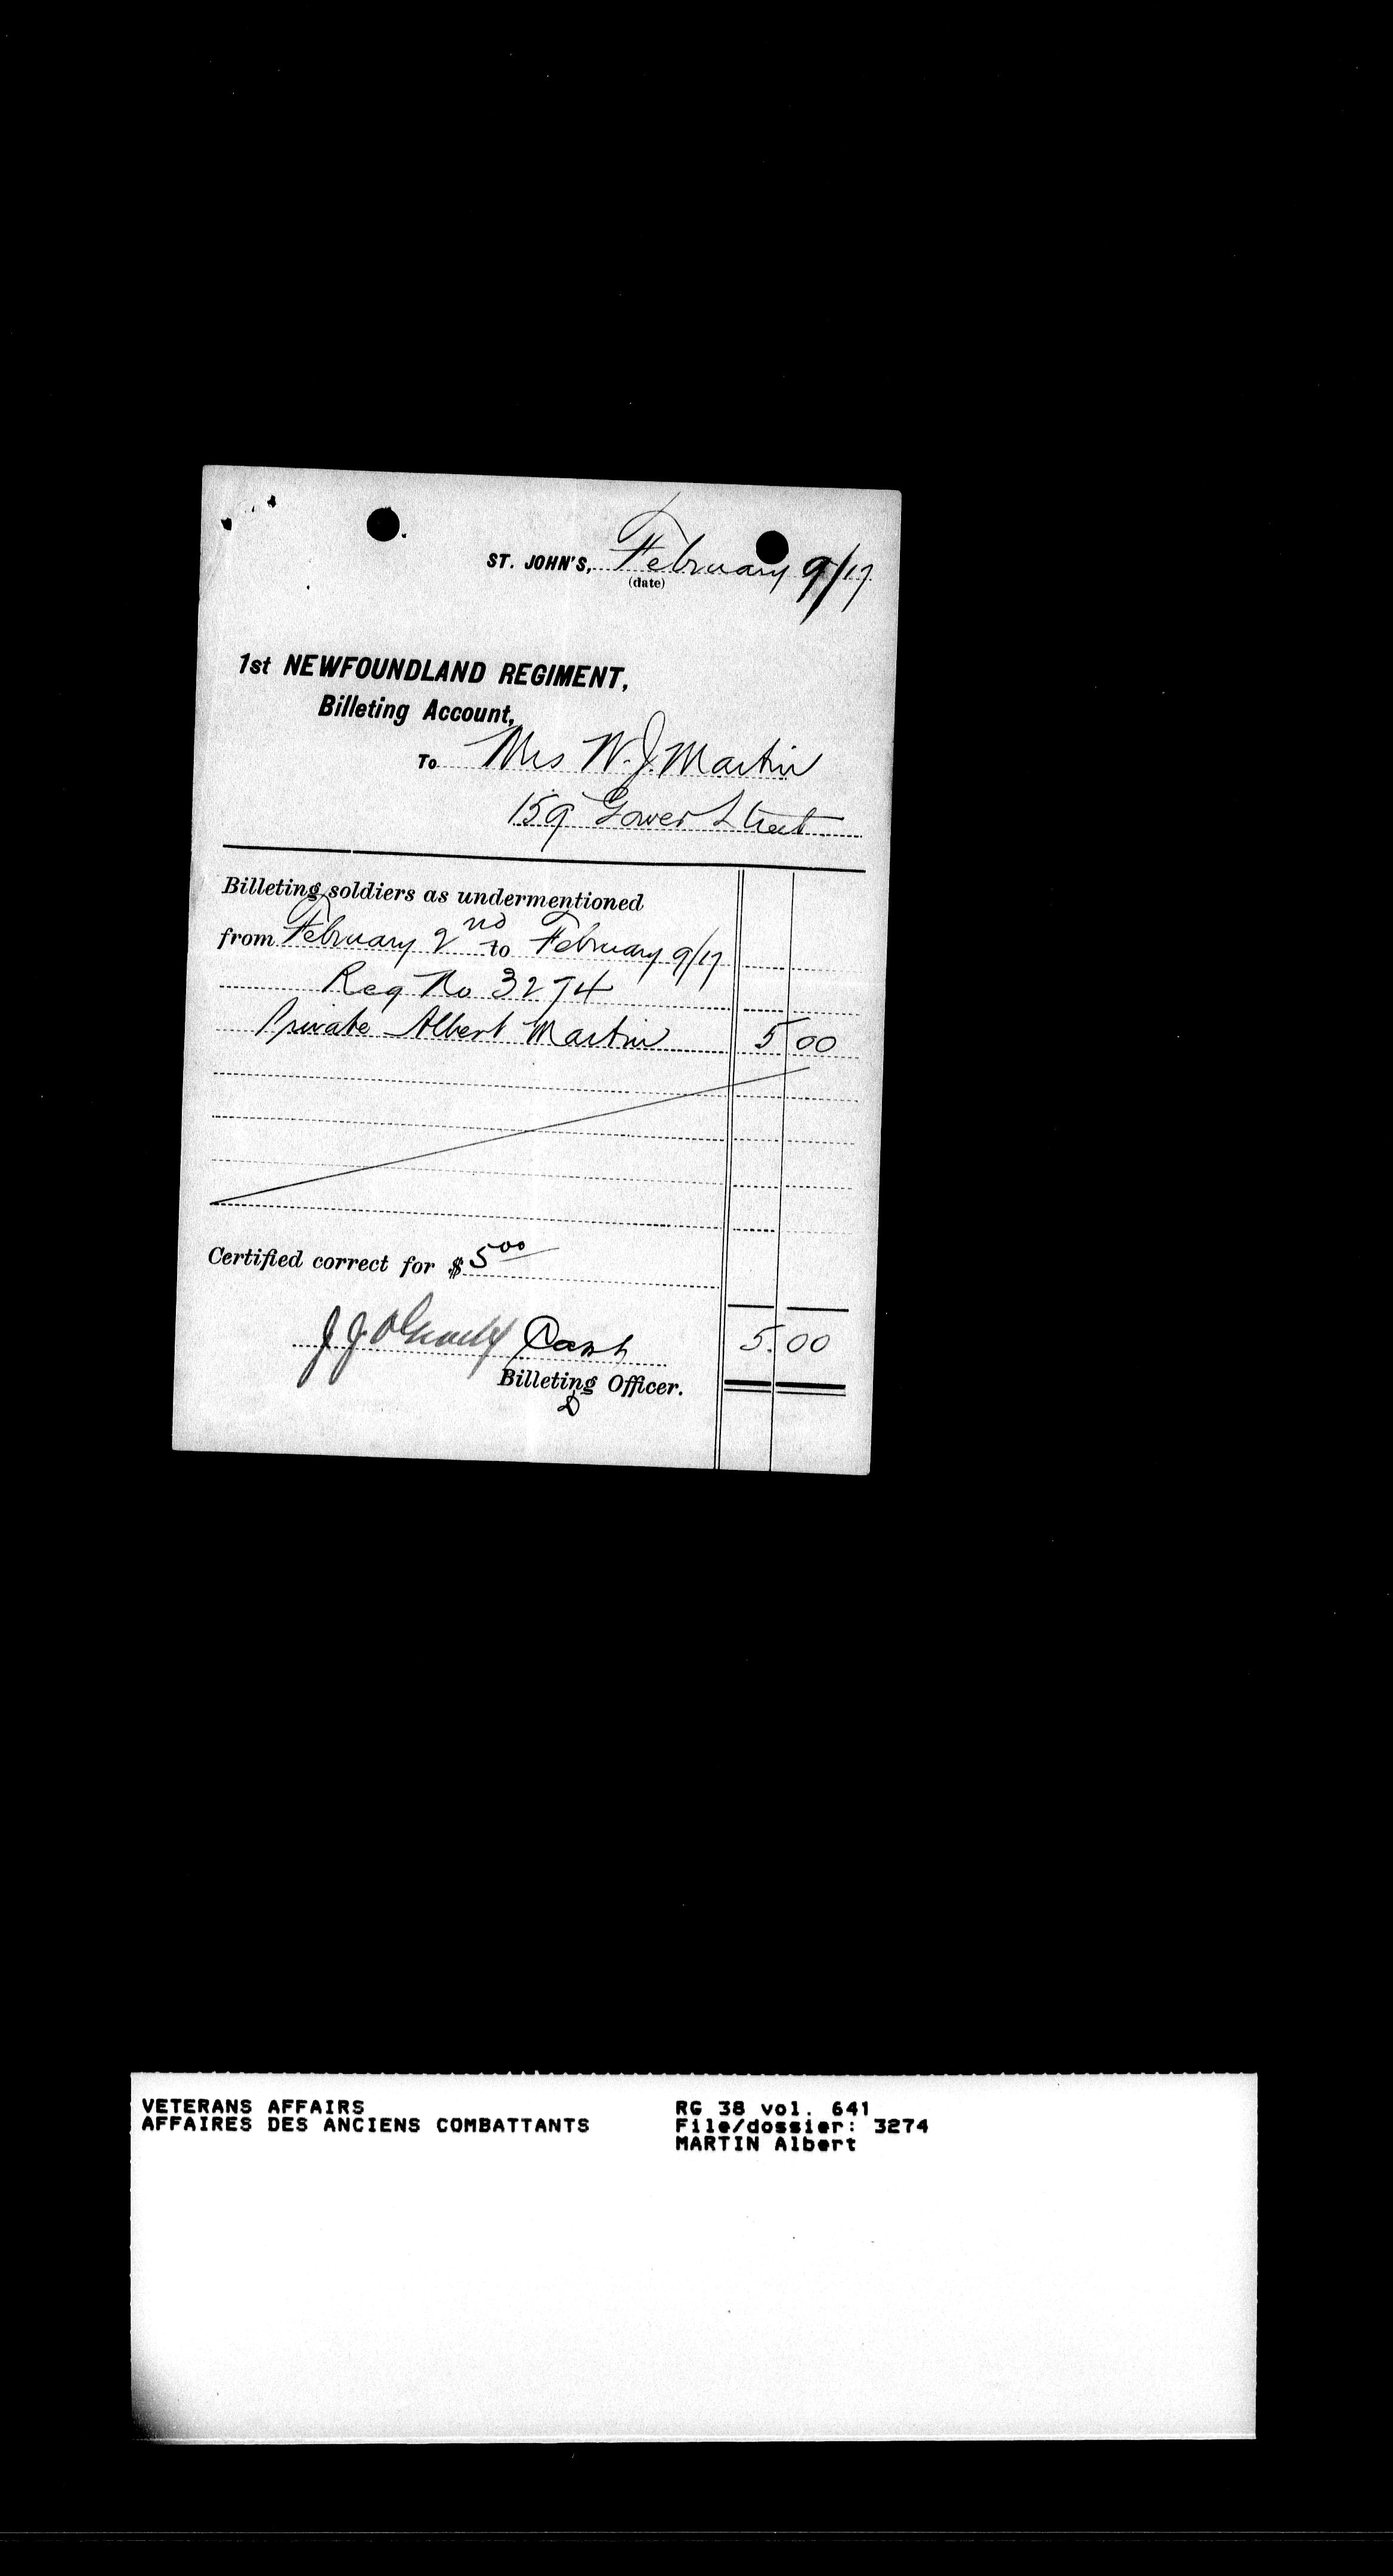 ST. JOHN'S, February 9/17
(date)
1st NEWFOUNDLAND REGIMENT,
Billeting Account,
To Mrs W. J. Martin
159 Gower Street
Billeting soldiers as undermentioned
from February 2nd to February 9/17
Reg No 3274
Private Albert Martin 5 00
Certified correct for $ 5 00
J. J. Capt 5.00
Billeting Officer.
VETERANS AFFAIRS RG 38 vol. 641
AFFAIRES DES ANCIENS COMBATTANTS File/dossier: 3274
MARTIN Albert